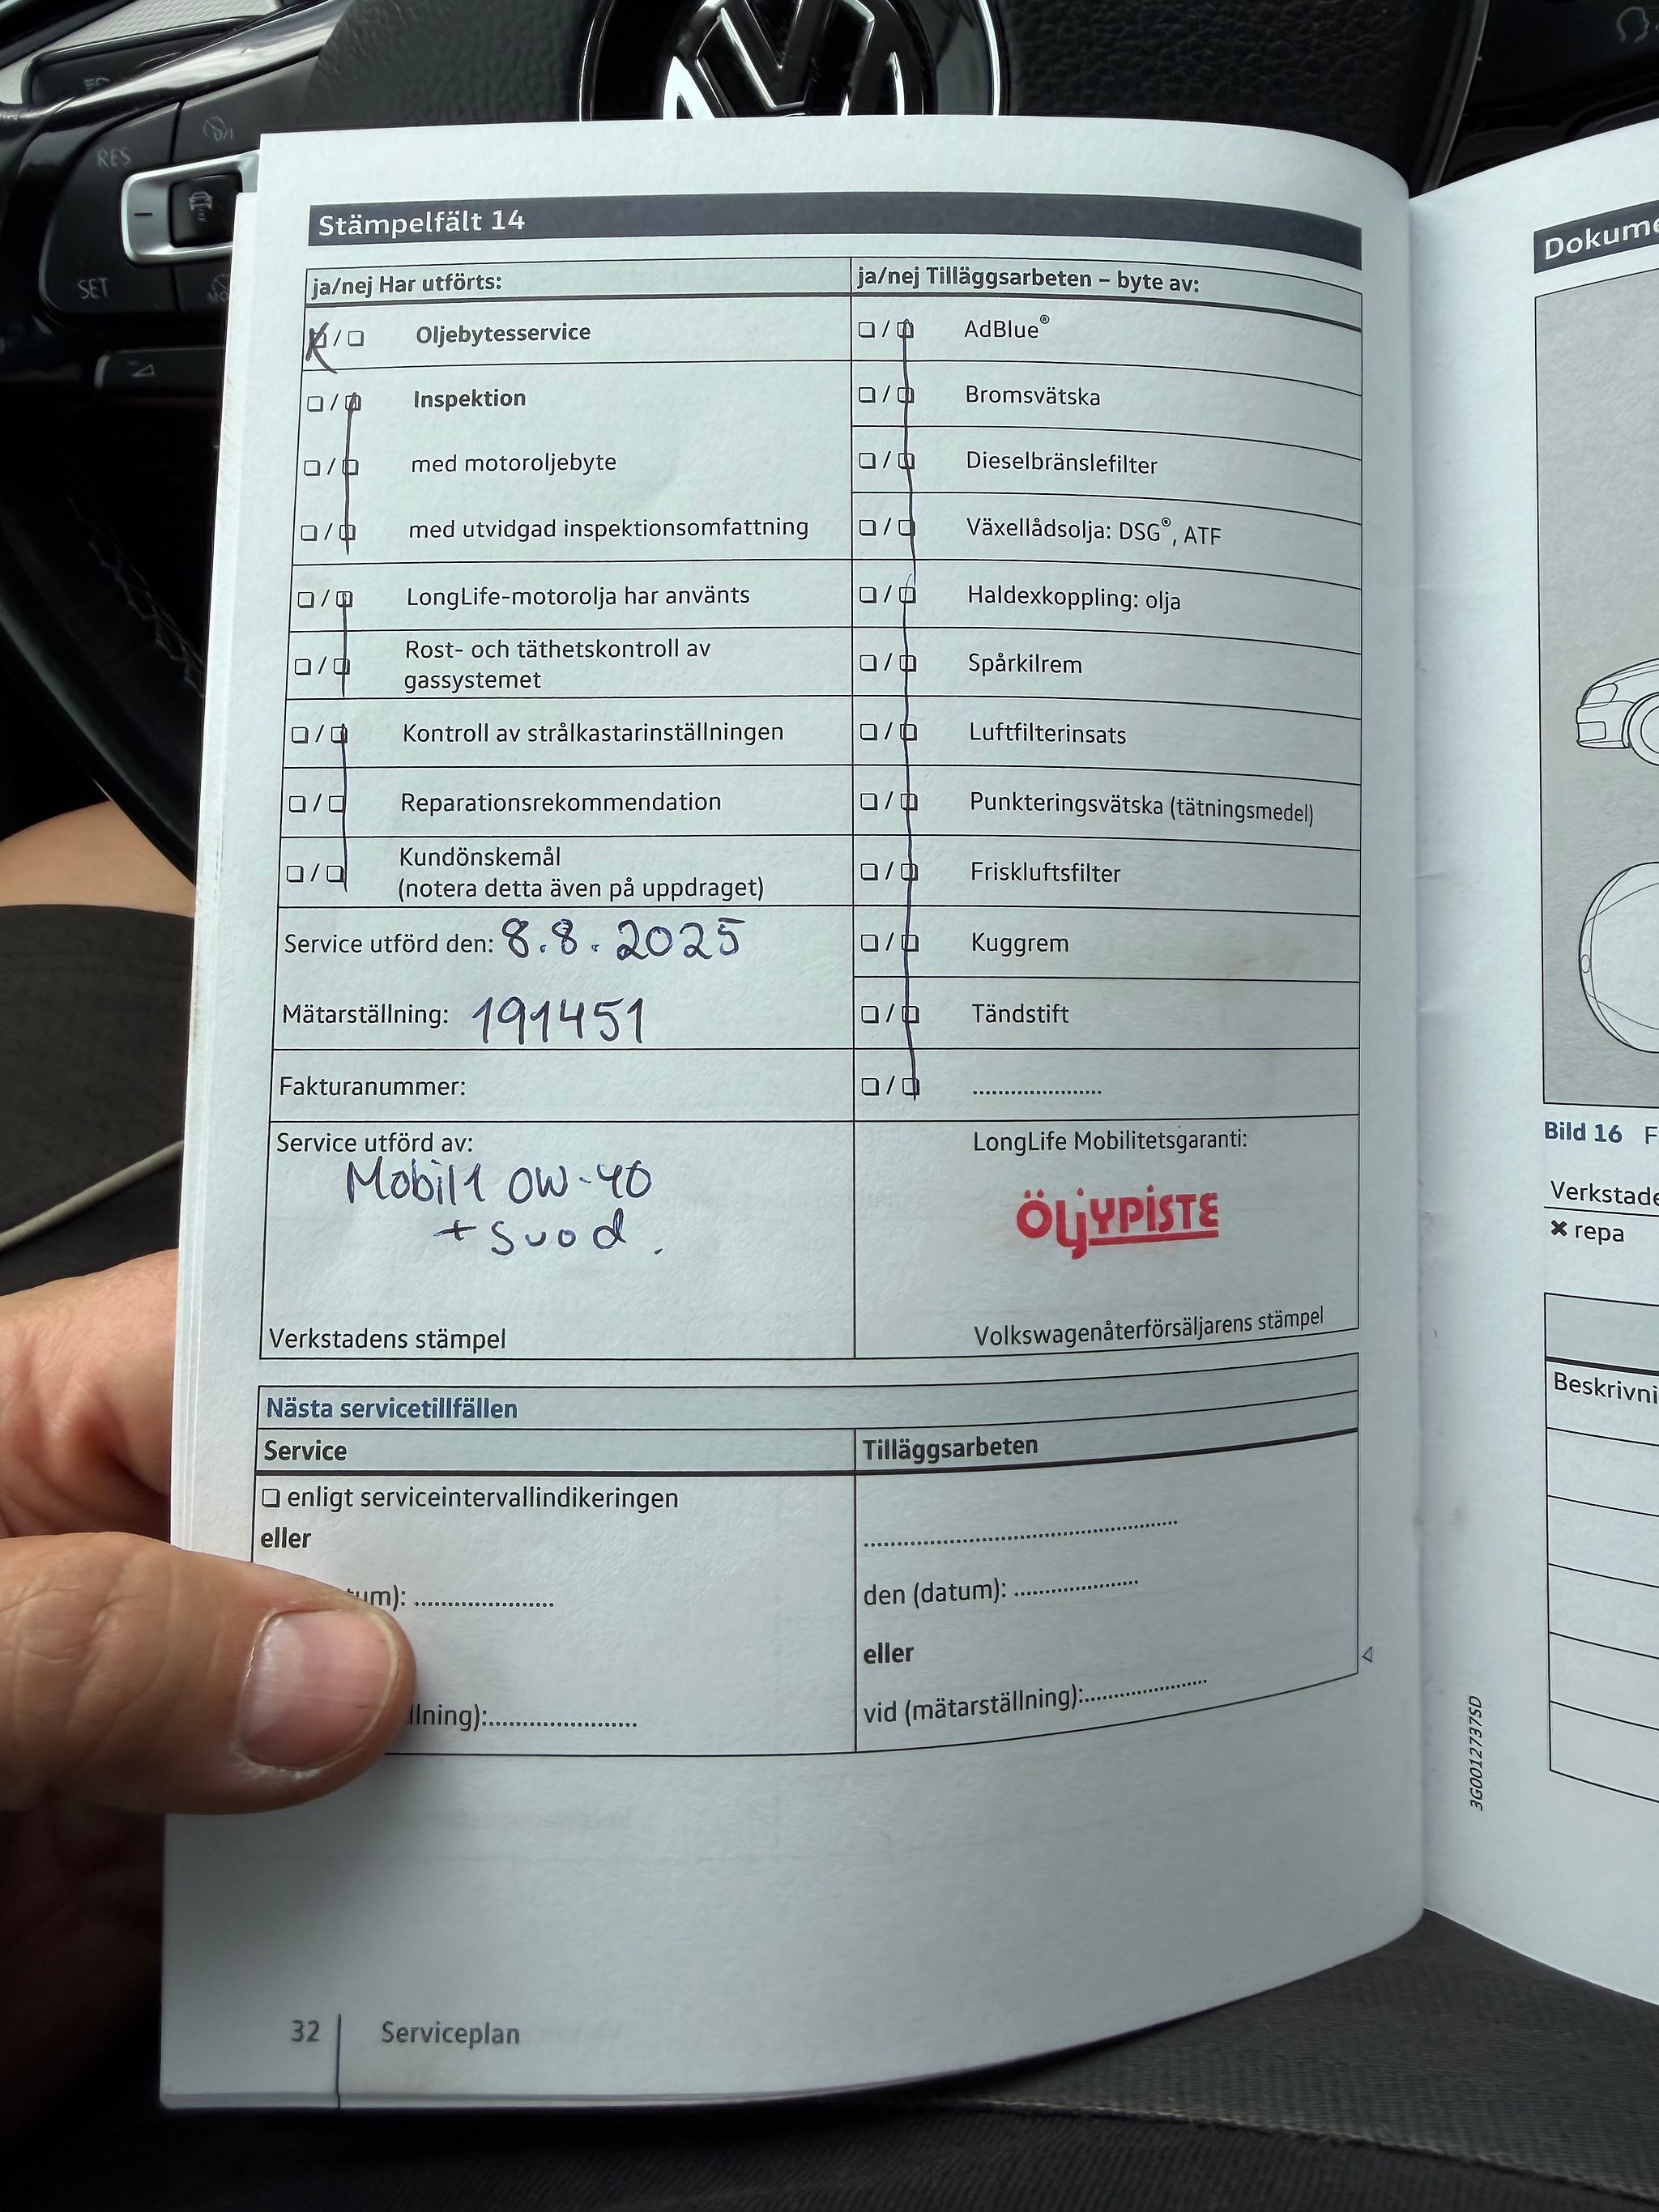 RES
SET
Stämpelfält 14
ja/nej Har utförts:
Oljebytesservice
Inspektion
med motoroljebyte
med utvidgad inspektionsomfattning
LongLife-motorolja har använts
Rost- och täthetskontroll av
gassystemet
Kontroll av strålkastarinställningen
Reparationsrekommendation
Kundönskemål
(notera detta även på uppdraget)
Service utförd den: 8.8.2025
Mätarställning: 191451
Fakturanummer:
Service utförd av:
Mobil1 0W-40
+ Suod.
Verkstadens stämpel
ja/nej Tilläggsarbeten – byte av:
AdBlue®
Bromsvätska
Dieselbränslefilter
Växellådsolja: DSG®, ATF
Haldexkoppling: olja
Spårkilrem
Luftfilterinsats
Punkteringsvätska (tätningsmedel)
Friskluftsfilter
Kuggrem
Tändstift
.....................
LongLife Mobilitetsgaranti:
ÖljYPISTE
Volkswagenåterförsäljarens stämpel
Nästa servicetillfällen
Service
enligt serviceintervallindikeringen
eller
tum): ......................
llning):.......................
Tilläggsarbeten
..................................................
den (datum): ....................
eller
vid (mätarställning):....................
32 Serviceplan
3G0012737SD
Dokume
Bild 16 F
Verkstade
✖ repa
Beskrivni